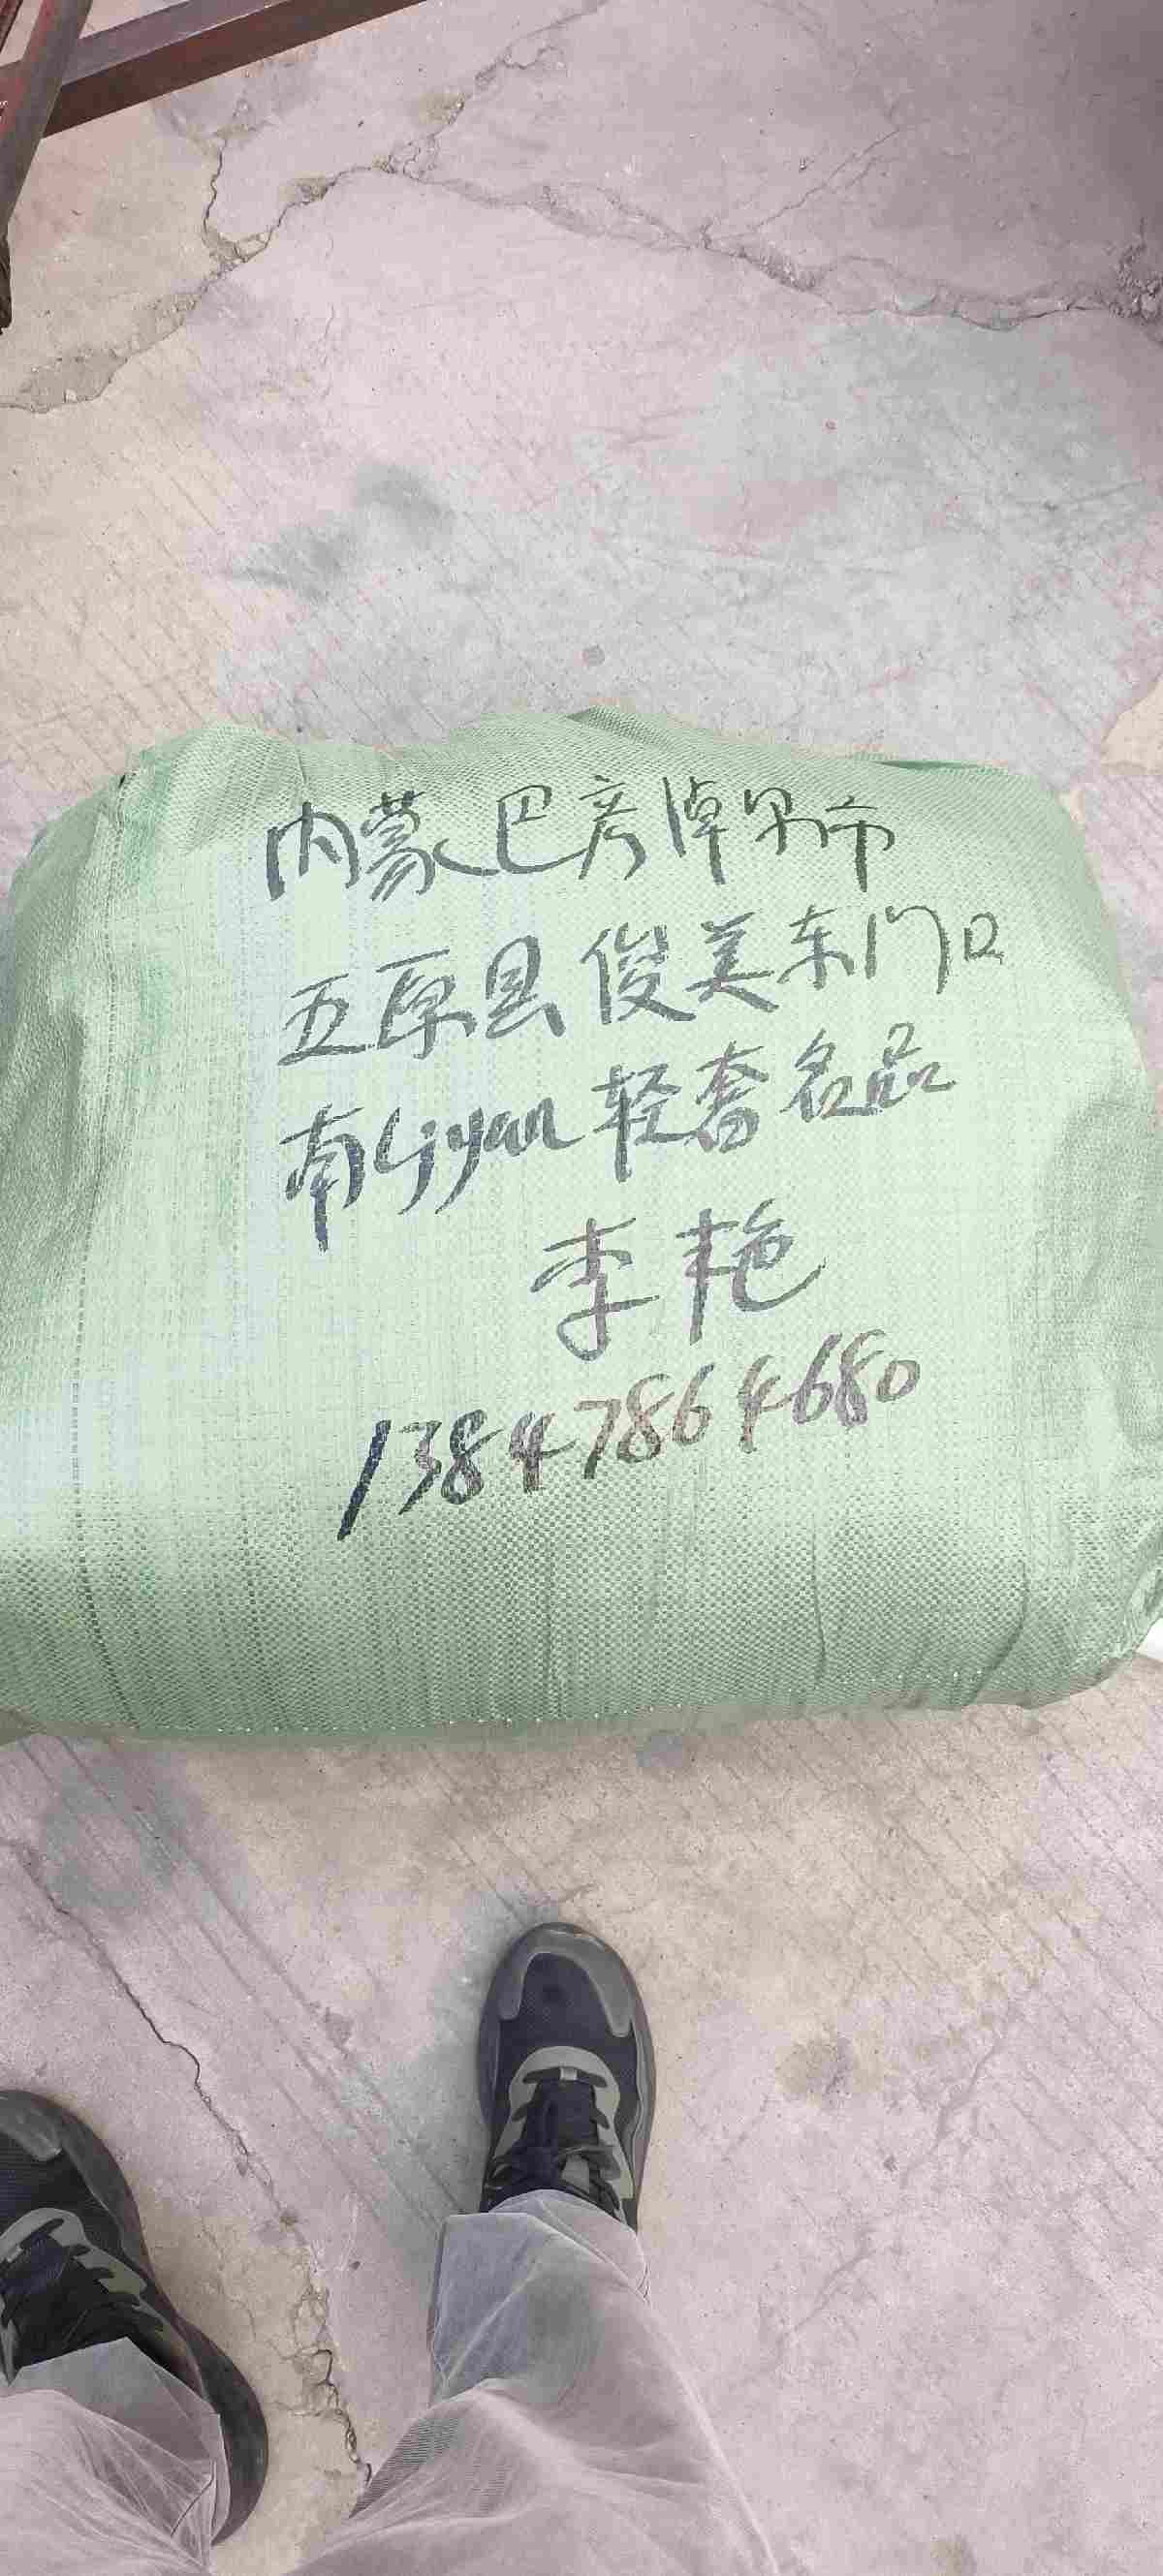 内蒙巴彦淖尔市
五原县俊美东门口
南Liyan轻奢名品
李艳
13847864680